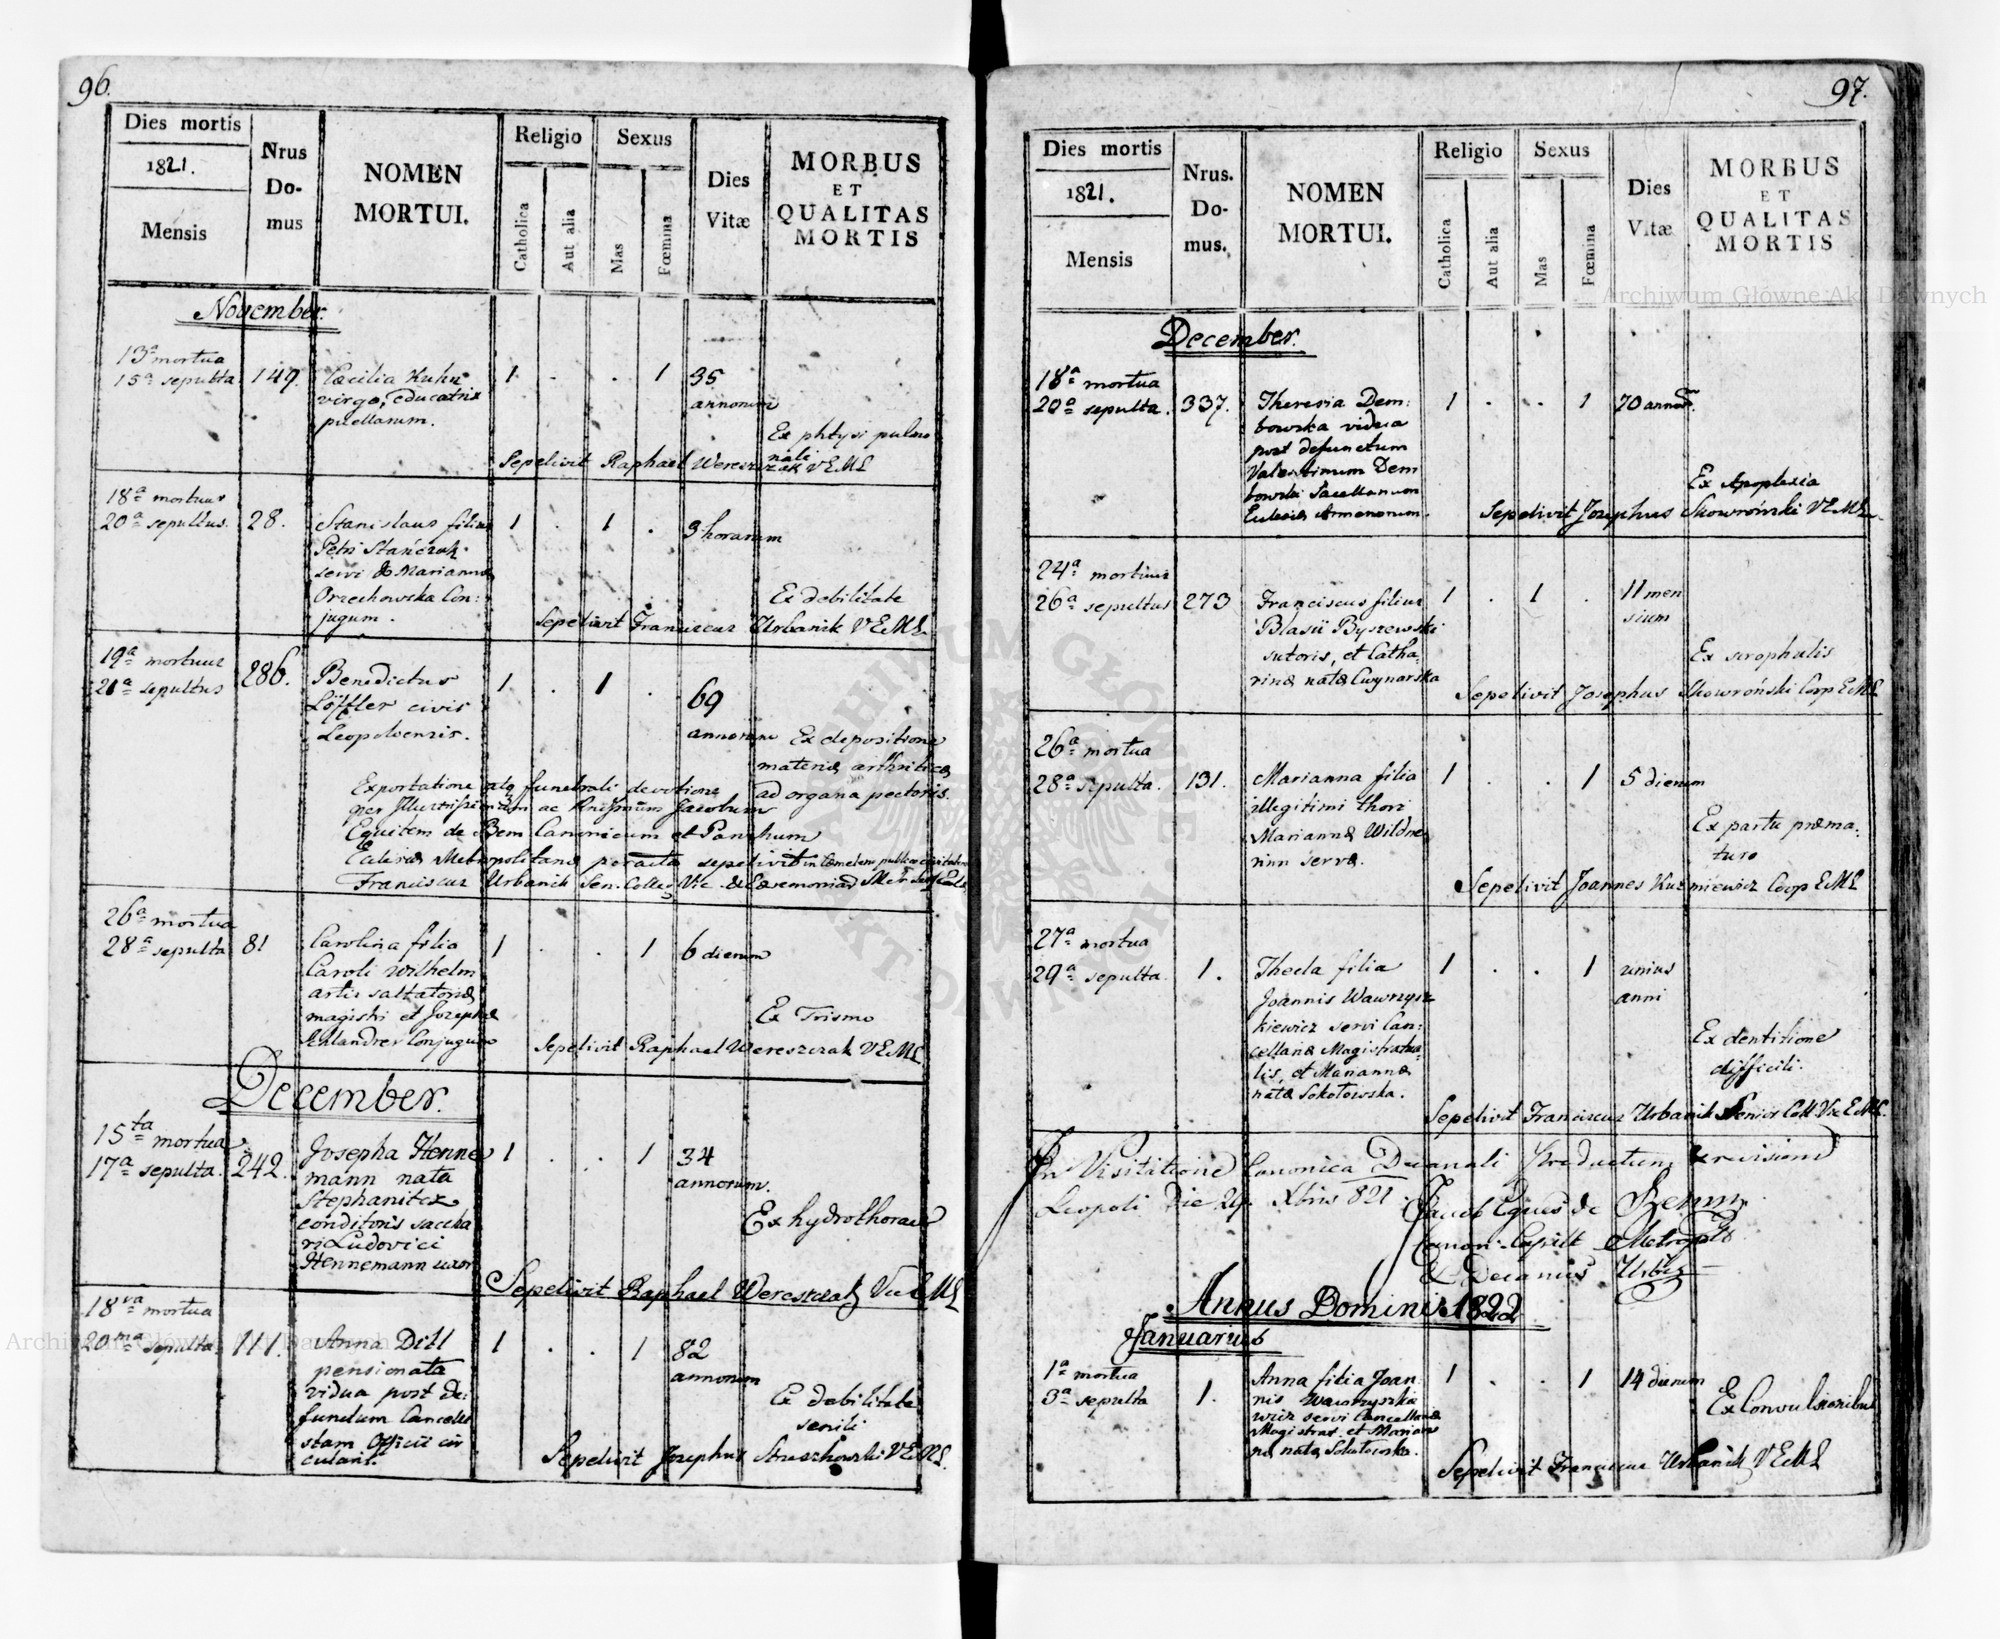 96.
Dies mortis
1821.
Mensis
Nrus
Do-
mus
NOMEN
MORTUI.
Religio
Catholica
Aut alia
Sexus
Mas
Fœmina
Dies
Vitæ
MORBUS
ET
QUALITAS
MORTIS
November.
13ª mortua
15ª sepulta 149. Cæcilia Kuhn 1 . . 1 35
virgo, educatrix annorum
puellarum.
Ex phtysi pulmo
nali
Sepelivit Raphael Wereszczak VEML
18ª mortuus
20ª sepultus. 28. Stanislaus filius 1 . 1 . 3 horarum
Petri Stańczak
servi & Mariannæ
Orzechowska Con:
jugum.
Ex debilitate
Sepelivit Franciscus Urbanik VEML
19ª mortuus
21ª sepultus 286. Benedictus 1 . 1 . 69
Löffler civis annorum
Leopoliensis.
Ex depositione
materiæ arthriticæ
ad organa pectoris.
Exportatione atq funebrali devotione
per Illustrissimum ac Rndssimum Jacobum
Equitem de Bem Canonicum et Parochum
Ecclesiæ Metropolitanæ peracta sepelivit in Cœmeterio publico civitatensi
Franciscus Urbanik Sen. Colleg Vic.
26ª mortua
28ª sepulta 81 Carolina filia 1 . . 1 6 dierum
Caroli Wilhelm
artis saltatoriæ
magistri et Josephæ
Schlandrer Conjugum
Ex Trismo
Sepelivit Raphael Wereszczak VEML
December.
15ta mortua
17ª sepulta. 242. Josepha Henne 1 . . 1 34
mann nata annorum.
Stephanitex
conditoris saccha
ri Ludovici
Hennemann uxor
Ex hydrothorace
Sepelivit Raphael Wereszczak Vic EML
18va mortua
20ma sepulta. 111. Anna Dill 1 . . 1 82
pensionata annorum
vidua post de:
functum Cancelli
stam Officii cir
cularis.
Ex debilitate
senili
Sepelivit Josephus Struszkowski VEML.
97.
Dies mortis
1821.
Mensis
Nrus.
Do-
mus.
NOMEN
MORTUI.
Religio
Catholica
Aut alia
Sexus
Mas
Fœmina
Dies
Vitæ
MORBUS
ET
QUALITAS
MORTIS
December.
18ª mortua
20ª sepulta. 337. Theresia Dem: 1 . . 1 70 annor.
bowska vidua
post defunctum
Valentinum Dem
bowski Sacellanum
Ecclesiæ Armenorum.
Ex Apoplexia
Sepelivit Josephus Skowroński VEML
24ª mortuus
26ª sepultus 273 Franciscus filius 1 . 1 . 11 men
Blasii Byszewski sium
sutoris, et Catha:
rinæ natæ Cwynarska
Ex scrophulis
Sepelivit Josephus Skowroński Coop EML
26ª mortua
28ª sepulta. 131. Marianna filia 1 . . 1 5 dierum
illegitimi thori
Mariannæ Wildne
rinn servæ.
Ex partu præma:
turo
Sepelivit Joannes Kuzmiewicz Coop EML
27ª mortua
29ª sepulta. 1. Thecla filia 1 . . 1 unius
Joannis Wawrzysz anni
kiewicz servi Can:
cellariæ Magistratua:
lis, et Mariannæ
natæ Sokołowska.
Ex dentitione
difficili.
Sepelivit Franciscus Urbanik Senior Coll Vic EML.
In Visitatione Canonica Decanali Productum & revisum
Leopoli Die 29. Xbris 821.
Jacob Eques de Bemm
Canon. Capitt Metropolt
& Decanus Urbis
Annus Domini 1822
Januarius
1ª mortua
3ª sepulta 1. Anna filia Joan 1 . . 1 14 dierum
nis Wawrzyszkie
wicz servi Cancellariæ
Magistrat. et Marian
næ natæ Sokołowska.
Ex Convulsionibus
Sepelivit Franciscus Urbanik VEML
Archiwum Główne Akt Dawnych
Archiwum Główne Akt Dawnych
ARCHIWUM GŁÓWNE AKT DAWNYCH